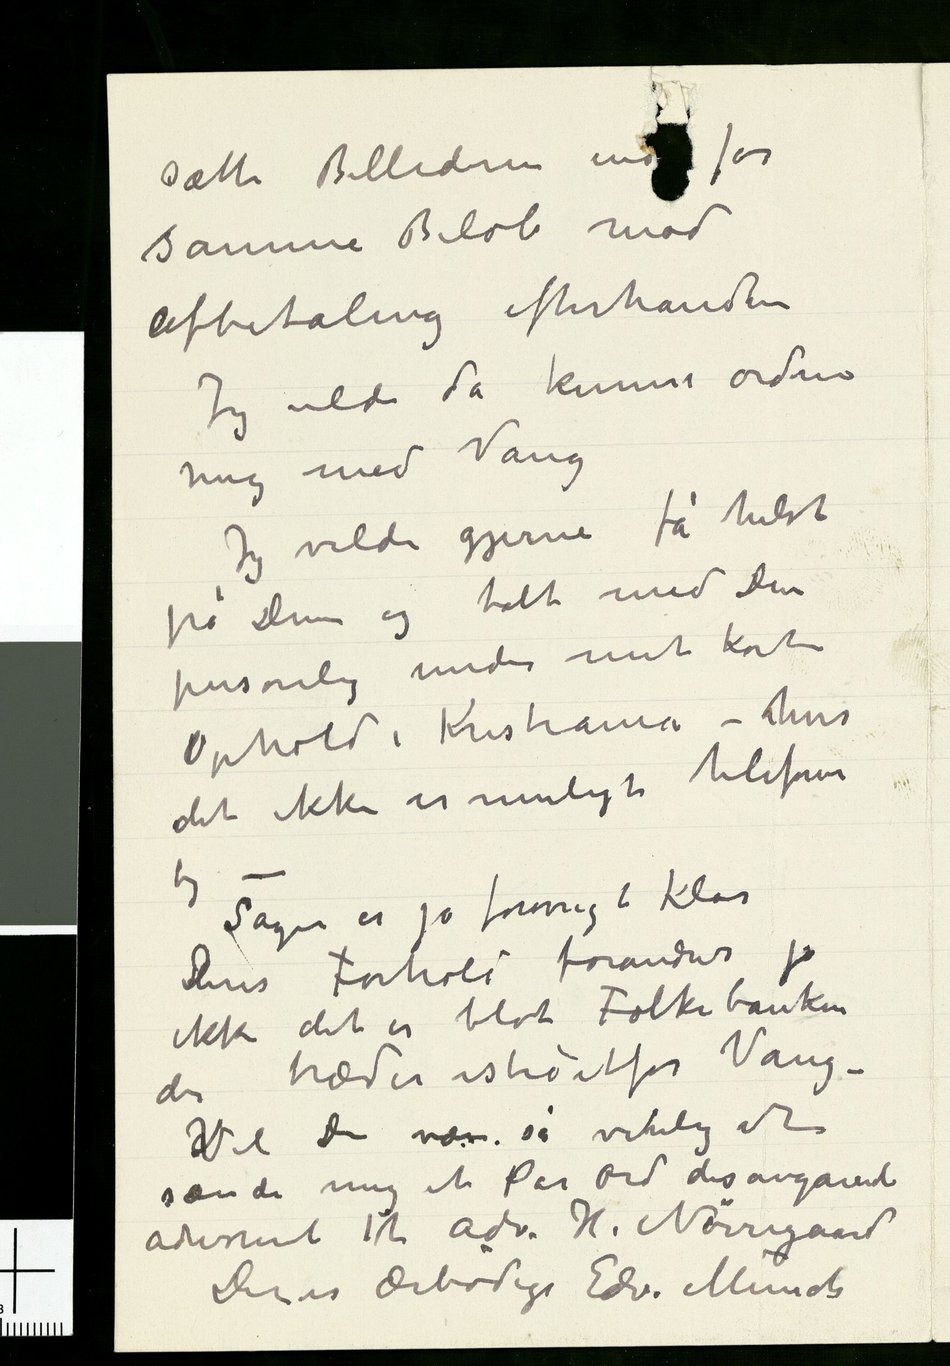 sætte Billederne ind for
samme Beløb mod
Afbetaling efterhånden
Jeg vilde da kunne ordne
mig med Vang
Jeg vilde gjerne få hilst
på Dem og talt med Dem
personlig under mit korte
Ophold i Kristiania – hvis
det ikke er muligt telefone-
re –
Sagen er jo forøvrigt klar
Deres Forhold forandres jo
ikke det er blot Folkebanken
der træder istedetfor Vang –
Vil De være så venlig at
sænde mig et Par Ord desangående
adresseret til Adv. H. Nörregaard
Deres Ærbødige Edv. Munch